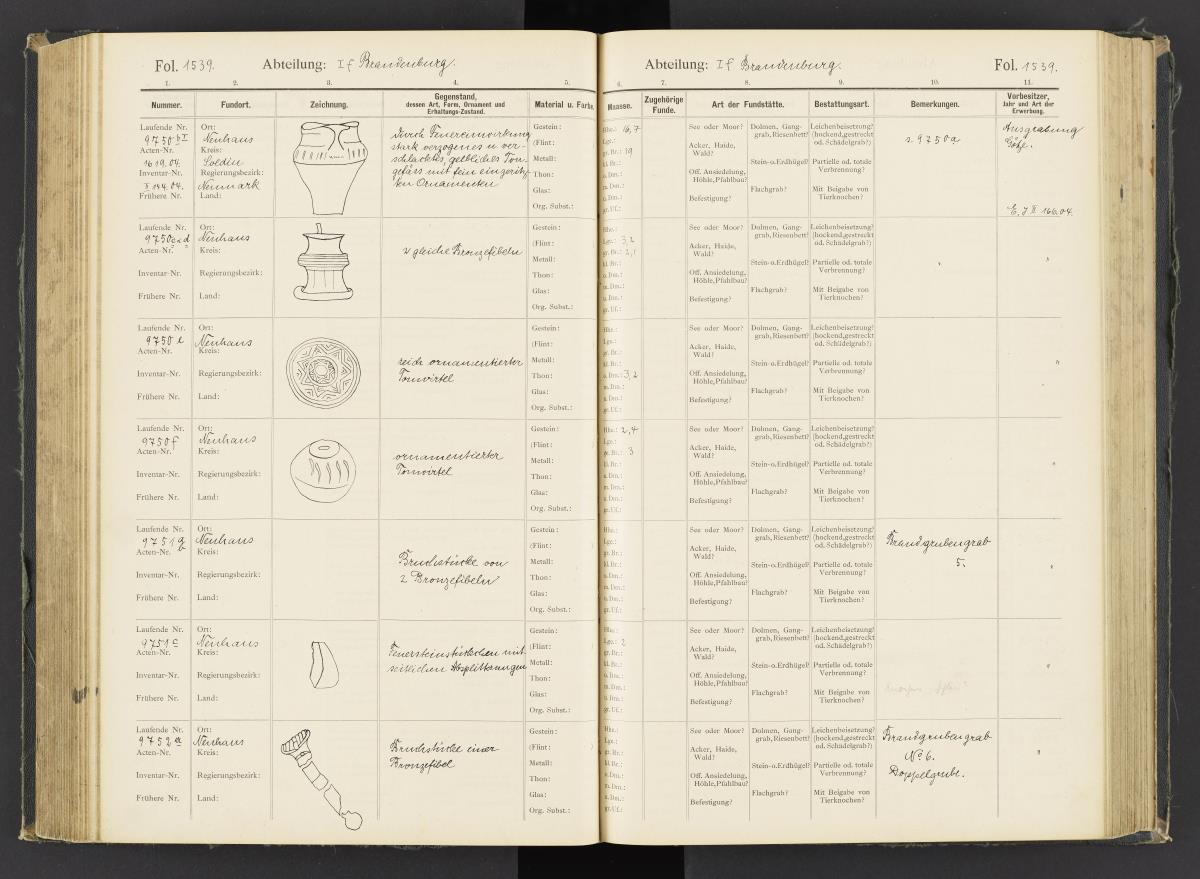 Fol. 1539. Abteilung: If Brandenburg.
Abteilung: If Brandenburg. Fol. 1539.
1. 2. 3. 4. 5. 6. 7. 8. 9. 10. 11.
Nummer. Fundort. Zeichnung. Gegenstand, dessen Art, Form, Ornament und Erhaltungs-Zustand. Material u. Farbe. Maasse. Zugehörige Funde. Art der Fundstätte. Bestattungsart. Bemerkungen. Vorbesitzer, Jahr und Art der Erwerbung.
Laufende Nr.
9750 b II
Acten-Nr.
1619.04.
Inventar-Nr.
II 144.04.
Frühere Nr.
Ort:
Neuhaus
Kreis:
Soldin
Regierungsbezirk:
Neumark
Land:
durch Feuereinwirkung
stark verzogenes u. ver-
schlacktes, gelbliches Ton-
gefäss mit fein eingeritz-
ten Ornamenten
Gestein:
(Flint:
Metall:
Thon:
Glas:
Org. Subst.:
Hhe.: 16,7
Lge.:
gr. Br.: 19
kl. Br.:
o. Dm.:
m. Dm.:
u. Dm.:
gr. Uf.:
See oder Moor?
Acker, Haide,
Wald?
Off. Ansiedelung,
Höhle, Pfahlbau?
Befestigung?
Dolmen, Gang-
grab, Riesenbett?
Stein-o. Erdhügel?
Flachgrab?
Leichenbeisetzung?
(hockend, gestreckt
od. Schädelgrab?)
Partielle od. totale
Verbrennung?
Mit Beigabe von
Tierknochen?
s. 9750a
Ausgrabung
Götze.
E. J II 166.04.
Laufende Nr.
9750 c u d
Acten-Nr.
Inventar-Nr.
Frühere Nr.
Ort:
Neuhaus
Kreis:
Regierungsbezirk:
Land:
2 gleiche Bronzefibeln
Gestein:
(Flint:
Metall:
Thon:
Glas:
Org. Subst.:
Hhe.:
Lge.: 3,2
gr. Br.: 2,1
kl. Br.:
o. Dm.:
m. Dm.:
u. Dm.:
gr. Uf.:
See oder Moor?
Acker, Haide,
Wald?
Off. Ansiedelung,
Höhle, Pfahlbau?
Befestigung?
Dolmen, Gang-
grab, Riesenbett?
Stein-o. Erdhügel?
Flachgrab?
Leichenbeisetzung?
(hockend, gestreckt
od. Schädelgrab?)
Partielle od. totale
Verbrennung?
Mit Beigabe von
Tierknochen?
"
"
Laufende Nr.
9750 e
Acten-Nr.
Inventar-Nr.
Frühere Nr.
Ort:
Neuhaus
Kreis:
Regierungsbezirk:
Land:
reich ornamentierter
Tonwirtel
Gestein:
(Flint:
Metall:
Thon:
Glas:
Org. Subst.:
Hhe.:
Lge.:
gr. Br.:
kl. Br.:
o. Dm.: 3,2
m. Dm.:
u. Dm.:
gr. Uf.:
See oder Moor?
Acker, Haide,
Wald?
Off. Ansiedelung,
Höhle, Pfahlbau?
Befestigung?
Dolmen, Gang-
grab, Riesenbett?
Stein-o. Erdhügel?
Flachgrab?
Leichenbeisetzung?
(hockend, gestreckt
od. Schädelgrab?)
Partielle od. totale
Verbrennung?
Mit Beigabe von
Tierknochen?
"
Laufende Nr.
9750 f
Acten-Nr.
Inventar-Nr.
Frühere Nr.
Ort:
Neuhaus
Kreis:
Regierungsbezirk:
Land:
ornamentierter
Tonwirtel
Gestein:
(Flint:
Metall:
Thon:
Glas:
Org. Subst.:
Hhe.: 2,4
Lge.:
gr. Br.: 3
kl. Br.:
o. Dm.:
m. Dm.:
u. Dm.:
gr. Uf.:
See oder Moor?
Acker, Haide,
Wald?
Off. Ansiedelung,
Höhle, Pfahlbau?
Befestigung?
Dolmen, Gang-
grab, Riesenbett?
Stein-o. Erdhügel?
Flachgrab?
Leichenbeisetzung?
(hockend, gestreckt
od. Schädelgrab?)
Partielle od. totale
Verbrennung?
Mit Beigabe von
Tierknochen?
"
Laufende Nr.
9751 a b
Acten-Nr.
Inventar-Nr.
Frühere Nr.
Ort:
Neuhaus
Kreis:
Regierungsbezirk:
Land:
Bruchstücke von
2 Bronzefibeln
Gestein:
(Flint:
Metall:
Thon:
Glas:
Org. Subst.:
Hhe.:
Lge.:
gr. Br.:
kl. Br.:
o. Dm.:
m. Dm.:
u. Dm.:
gr. Uf.:
See oder Moor?
Acker, Haide,
Wald?
Off. Ansiedelung,
Höhle, Pfahlbau?
Befestigung?
Dolmen, Gang-
grab, Riesenbett?
Stein-o. Erdhügel?
Flachgrab?
Leichenbeisetzung?
(hockend, gestreckt
od. Schädelgrab?)
Partielle od. totale
Verbrennung?
Mit Beigabe von
Tierknochen?
Brandgrubengrab
5.
"
Laufende Nr.
9751 c
Acten-Nr.
Inventar-Nr.
Frühere Nr.
Ort:
Neuhaus
Kreis:
Regierungsbezirk:
Land:
Feuersteinstückchen mit
seitlichen Absplitterungen
Gestein:
(Flint:
Metall:
Thon:
Glas:
Org. Subst.:
Hhe.:
Lge.: 2
gr. Br.:
kl. Br.:
o. Dm.:
m. Dm.:
u. Dm.:
gr. Uf.:
See oder Moor?
Acker, Haide,
Wald?
Off. Ansiedelung,
Höhle, Pfahlbau?
Befestigung?
Dolmen, Gang-
grab, Riesenbett?
Stein-o. Erdhügel?
Flachgrab?
Leichenbeisetzung?
(hockend, gestreckt
od. Schädelgrab?)
Partielle od. totale
Verbrennung?
Mit Beigabe von
Tierknochen?
"
Laufende Nr.
9752 a
Acten-Nr.
Inventar-Nr.
Frühere Nr.
Ort:
Neuhaus
Kreis:
Regierungsbezirk:
Land:
Bruchstücke einer
Bronzefibel
Gestein:
(Flint:
Metall:
Thon:
Glas:
Org. Subst.:
Hhe.:
Lge.:
gr. Br.:
kl. Br.:
o. Dm.:
m. Dm.:
u. Dm.:
gr. Uf.:
See oder Moor?
Acker, Haide,
Wald?
Off. Ansiedelung,
Höhle, Pfahlbau?
Befestigung?
Dolmen, Gang-
grab, Riesenbett?
Stein-o. Erdhügel?
Flachgrab?
Leichenbeisetzung?
(hockend, gestreckt
od. Schädelgrab?)
Partielle od. totale
Verbrennung?
Mit Beigabe von
Tierknochen?
Brandgrubengrab
No 6.
Doppelgrube.
"